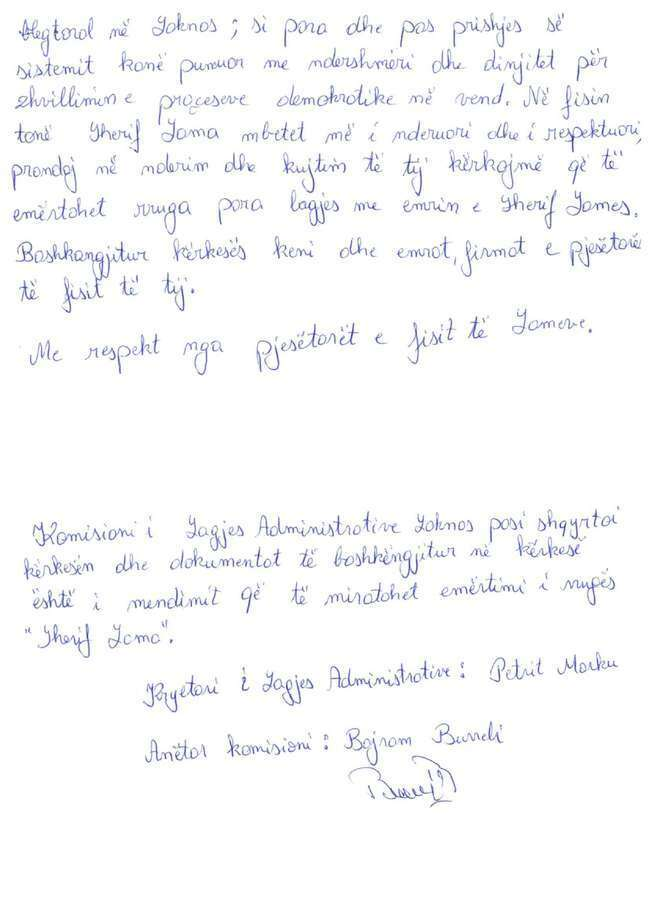 blegtoral në Laknas; si para dhe pas prishjes së
sistemit kanë punuar me ndershmëri dhe dinjitet për
zhvillimin e proceseve demokratike në vend. Në fisin
tonë Sherif Lama mbetet më i nderuari dhe i respektuari,
prandaj në nderim dhe kujtim të tij kërkojmë që të
emërtohet rruga para lagjes me emrin e Sherif Lames.
Bashkangjitur kërkesës keni dhe emrat, firmat e pjesëtarë
të fisit të tij.
Me respekt nga pjesëtarët e fisit të Lameve.
Komisioni i Lagjes Administrative Laknas pasi shqyrtoi
kërkesën dhe dokumentat të bashkëngjitur në kërkesë
është i mendimit që të miratohet emërtimi i rrugës
"Sherif Lama".
Kryetari i Lagjes Administrative: Petrit Marku
Anëtar komisioni: Bajram Burreli